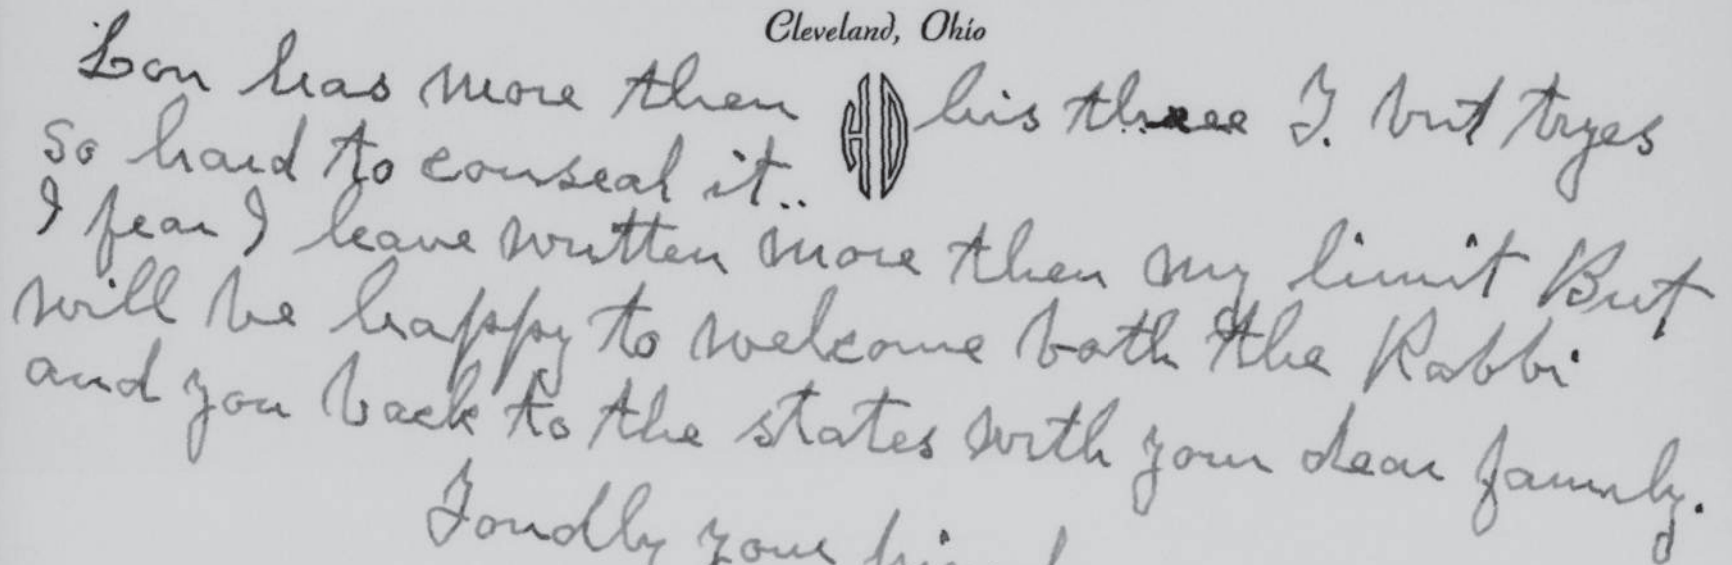 Cleveland, Ohio
HD
Lou has more then his three I. but tryes
so hard to conseal it..
I fear I have written more then my limit But
will be happy to welcome both the Rabbi
and you back to the states with your dear family.
Fondly your